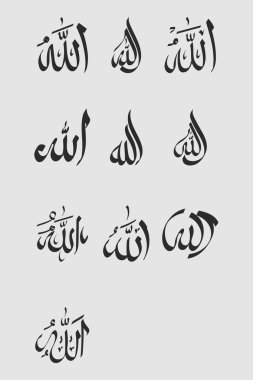 الله الله الله
الله الله الله
الله الله الله
الله